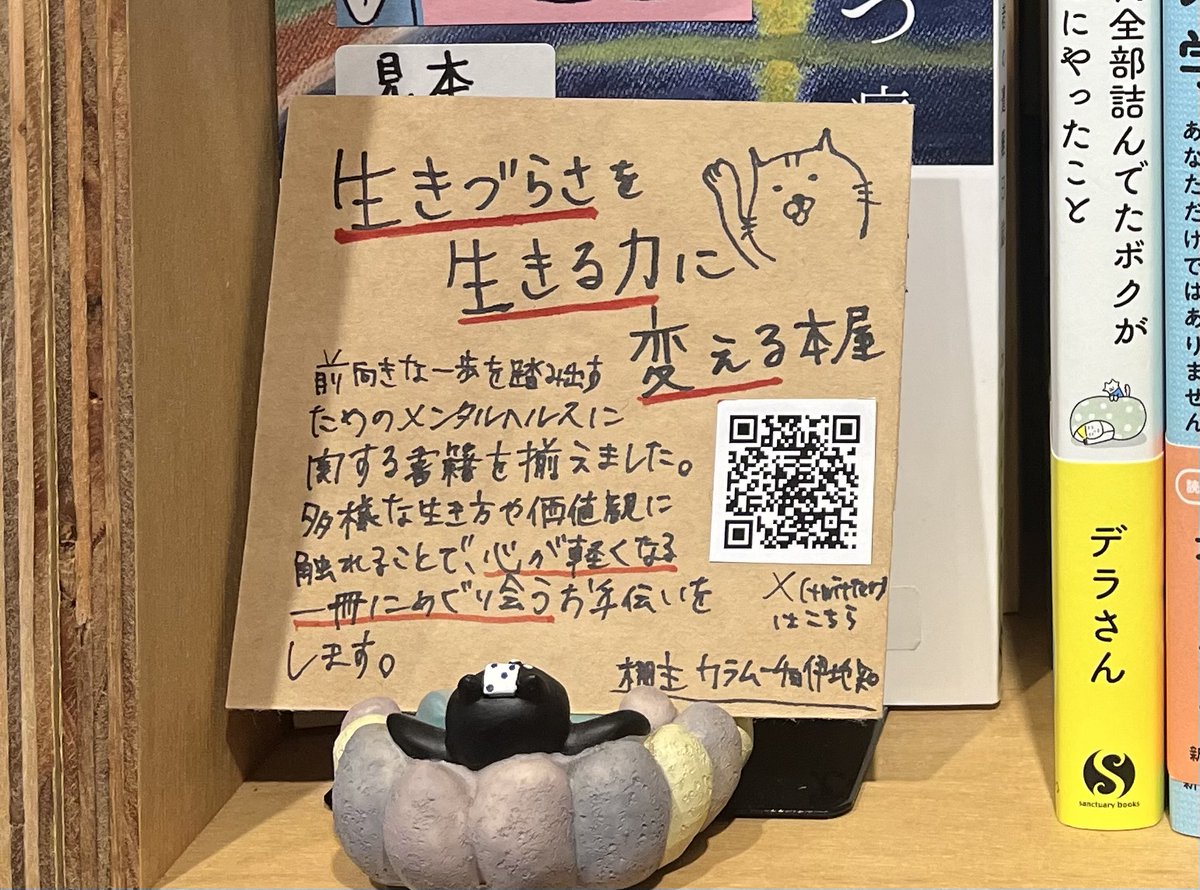 見本
生きづらさを
生きる力に
変える本屋
前向きな一歩を踏み出す
ためのメンタルヘルスに
関する書籍を揃えました。
多様な生き方や価値観に
触れることで、心が軽くなる
一冊にめぐり会うお手伝いを
します。
X(twitter)
はこちら
棚主 カラムーチョ伊地知
全部詰んでたボクが
にやったこと
デラさん
sanctuary books
あなただけではありません